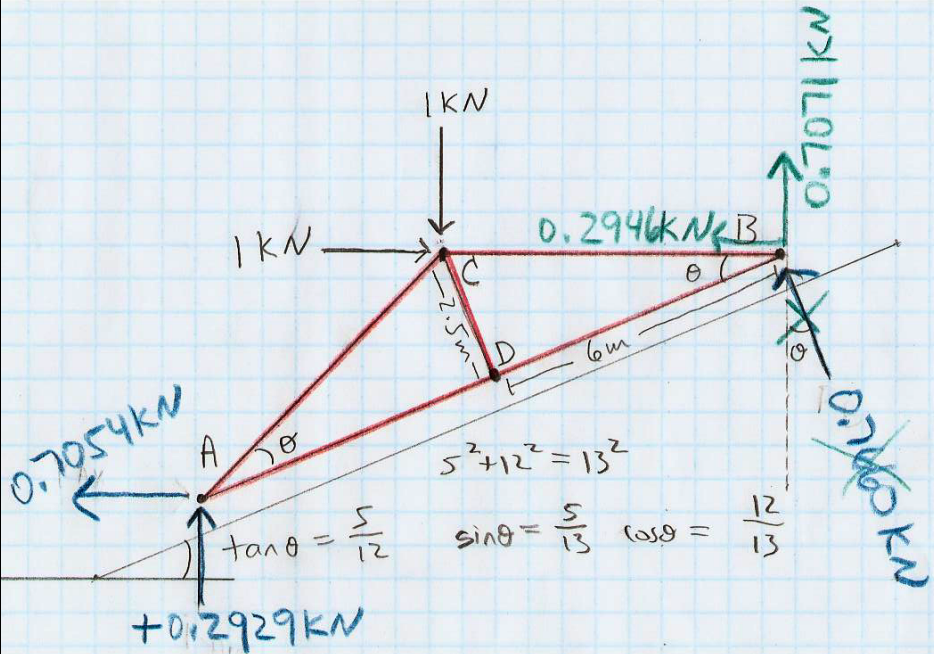 1KN
0.7071KN
1KN
0.2946KN
B
C
θ
2.5m
D
6m
θ
0.7660KN
0.7054KN
A
θ
5²+12²=13²
tanθ = 5/12
sinθ = 5/13
cosθ = 12/13
+0.2929KN